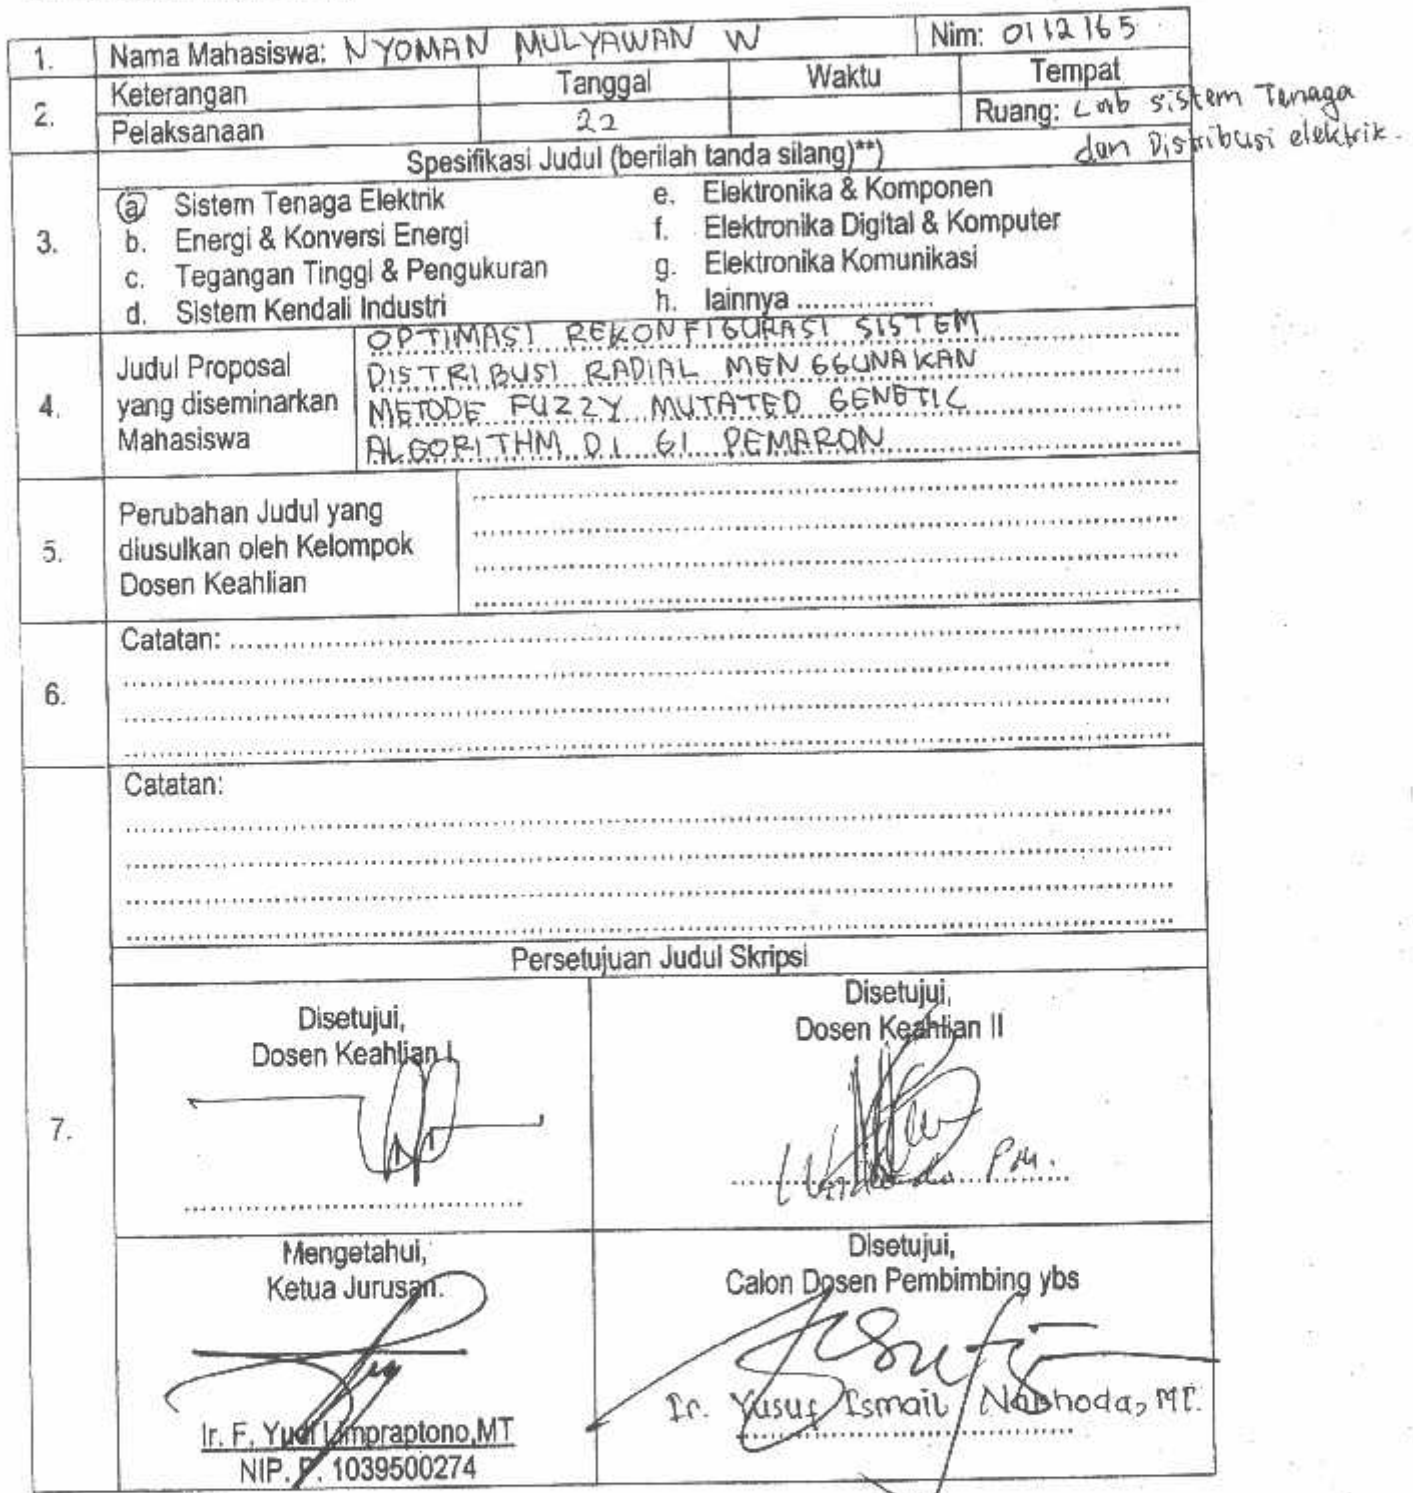 1. Nama Mahasiswa: NYOMAN MULYAWAN W Nim: 0112165
2. Keterangan Tanggal Waktu Tempat
Pelaksanaan 22 Ruang: Lab sistem Tenaga
dan Distribusi elektrik.
Spesifikasi Judul (berilah tanda silang)**)
3.
a Sistem Tenaga Elektrik e. Elektronika & Komponen
b. Energi & Konversi Energi f. Elektronika Digital & Komputer
c. Tegangan Tinggi & Pengukuran g. Elektronika Komunikasi
d. Sistem Kendali Industri h. lainnya ................
4.
Judul Proposal
yang diseminarkan
Mahasiswa
OPTIMASI REKONFIGURASI SISTEM
DISTRIBUSI RADIAL MENGGUNAKAN
METODE FUZZY MUTATED GENETIC
ALGORITHM DI GI PEMARON
5.
Perubahan Judul yang
diusulkan oleh Kelompok
Dosen Keahlian
6.
Catatan:
7.
Catatan:
Persetujuan Judul Skripsi
Disetujui,
Dosen Keahlian I
Disetujui,
Dosen Keahlian II
Mengetahui,
Ketua Jurusan.
Ir. F. Yudi Limpraptono,MT
NIP. P. 1039500274
Disetujui,
Calon Dosen Pembimbing ybs
Ir. Yusuf Ismail Nakhoda, MT.